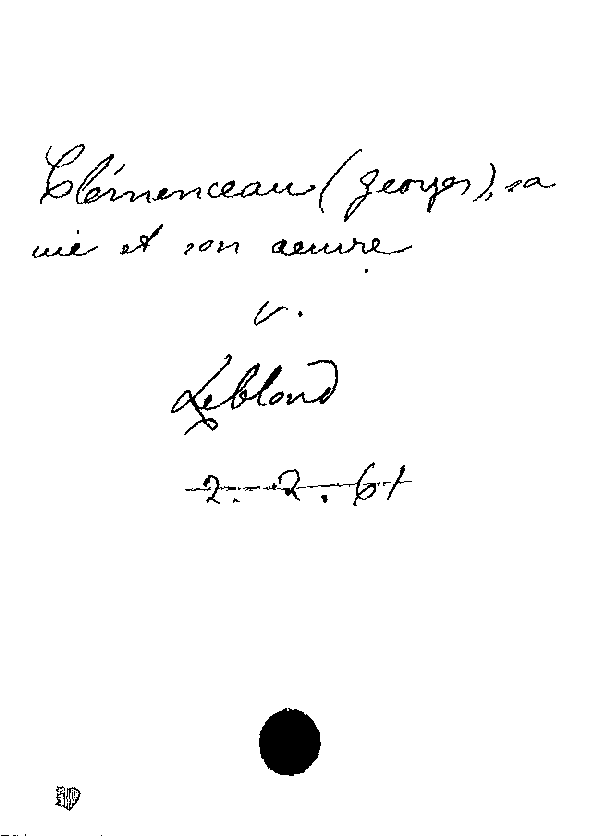 Clémenceau (Georges), sa
vie et son oeuvre
v.
Leblond
2. 2. 61